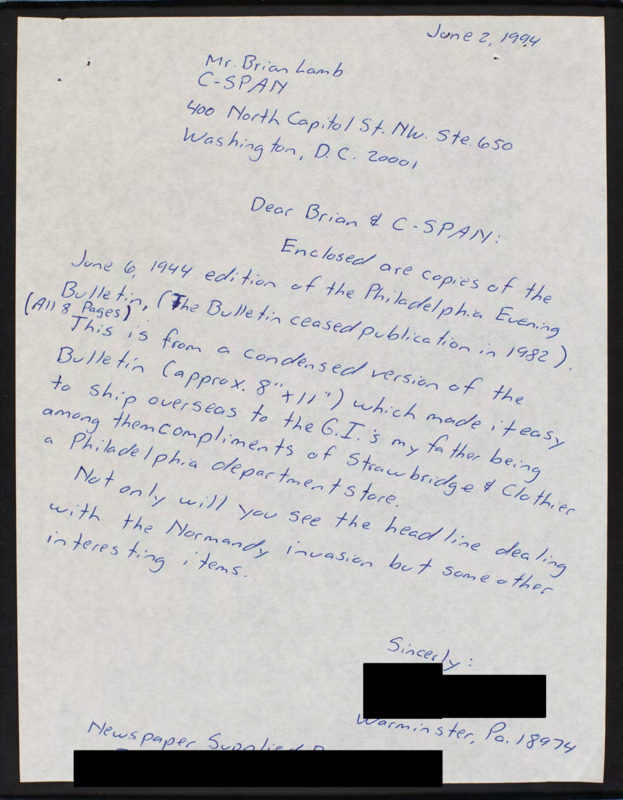 June 2, 1994
Mr. Brian Lamb
C-SPAN
400 North Capitol St. NW. Ste. 650
Washington, D.C. 20001
Dear Brian & C-SPAN:
Enclosed are copies of the
June 6, 1944 edition of the Philadelphia Evening
Bulletin, (The Bulletin ceased publication in 1982).
(All 8 Pages)
This is from a condensed version of the
Bulletin (approx. 8" x 11") which made it easy
to ship overseas to the G.I.'s my father being
among them compliments of Strawbridge & Clothier
a Philadelphia department store.
Not only will you see the headline dealing
with the Normandy invasion but some other
interesting items.
Sincerly:
Warminster, Pa. 18974
Newspaper Supplied